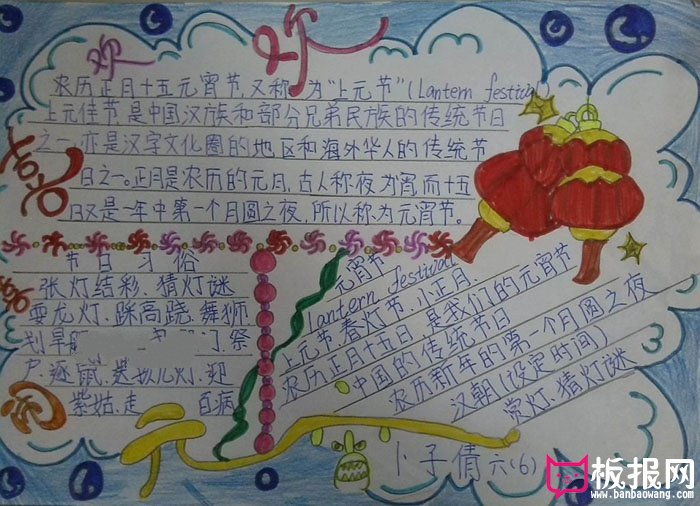 欢
度
喜
农历正月十五元宵节,又称为"上元节"(Lantern festival)
上元佳节是中国汉族和部分兄弟民族的传统节日
之一,亦是汉字文化圈的地区和海外华人的传统节
日之一。正月是农历的元月,古人称夜为宵而十五
日又是一年中第一个月圆之夜,所以称为元宵节。
节日习俗
张灯结彩、猜灯谜
耍龙灯、踩高跷、舞狮
划旱
祭
户、逐鼠、
迎
紫姑、走
百病
元宵节
Lantern festival
上元节、春灯节、小正月、
农历正月十五日 是我们的元宵节
中国的传统节日
农历新年的第一个月圆之夜
汉朝(设定时间)
赏灯、猜灯谜
卜子倩 六(6)
板报网
www.banbaowang.com